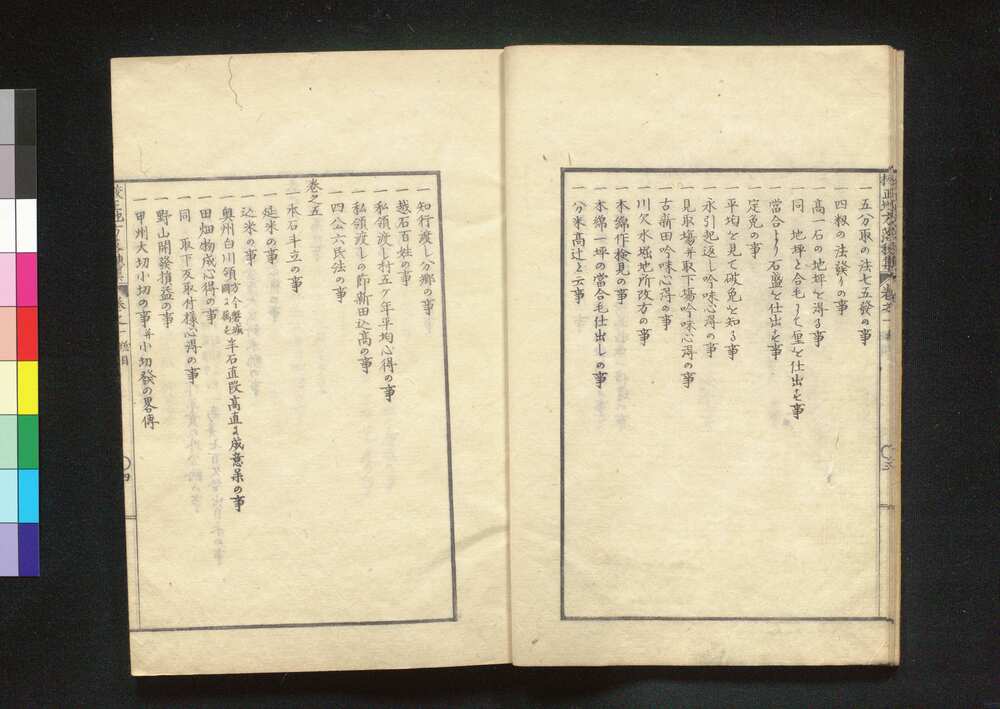 一 五分取の法七五發の事
一 四粮の法發りの事
一 高一石の地坪を得る事
一 同 地坪と合毛にて厘を仕出す事
一 當合より石盛を仕出す事
一 定免の事
一 平均を見て破免を知る事
一 永引起返し吟味心得の事
一 見取場并取下場吟味心得の事
一 古新田吟味心得の事
一 川欠水堀地所改方の事
一 木綿作検見の事
一 木綿一坪の當合毛仕出しの事
一 分米高辻と云事
一 知行渡し分郷の事
一 越石百姓の事
一 私領渡し村五ケ年平均心得の事
一 私領渡しの節新田込高の事
一 四公六民法の事
巻之五
一 本石斗立の事
一 延米の事
一 込米の事
一 奥州白川領半石直段高直の事
一 田畑物成心得の事
一 同 取下及取付様心得の事
一 野山開發損益の事
一 甲州大切小切の事并小切發の畧傳